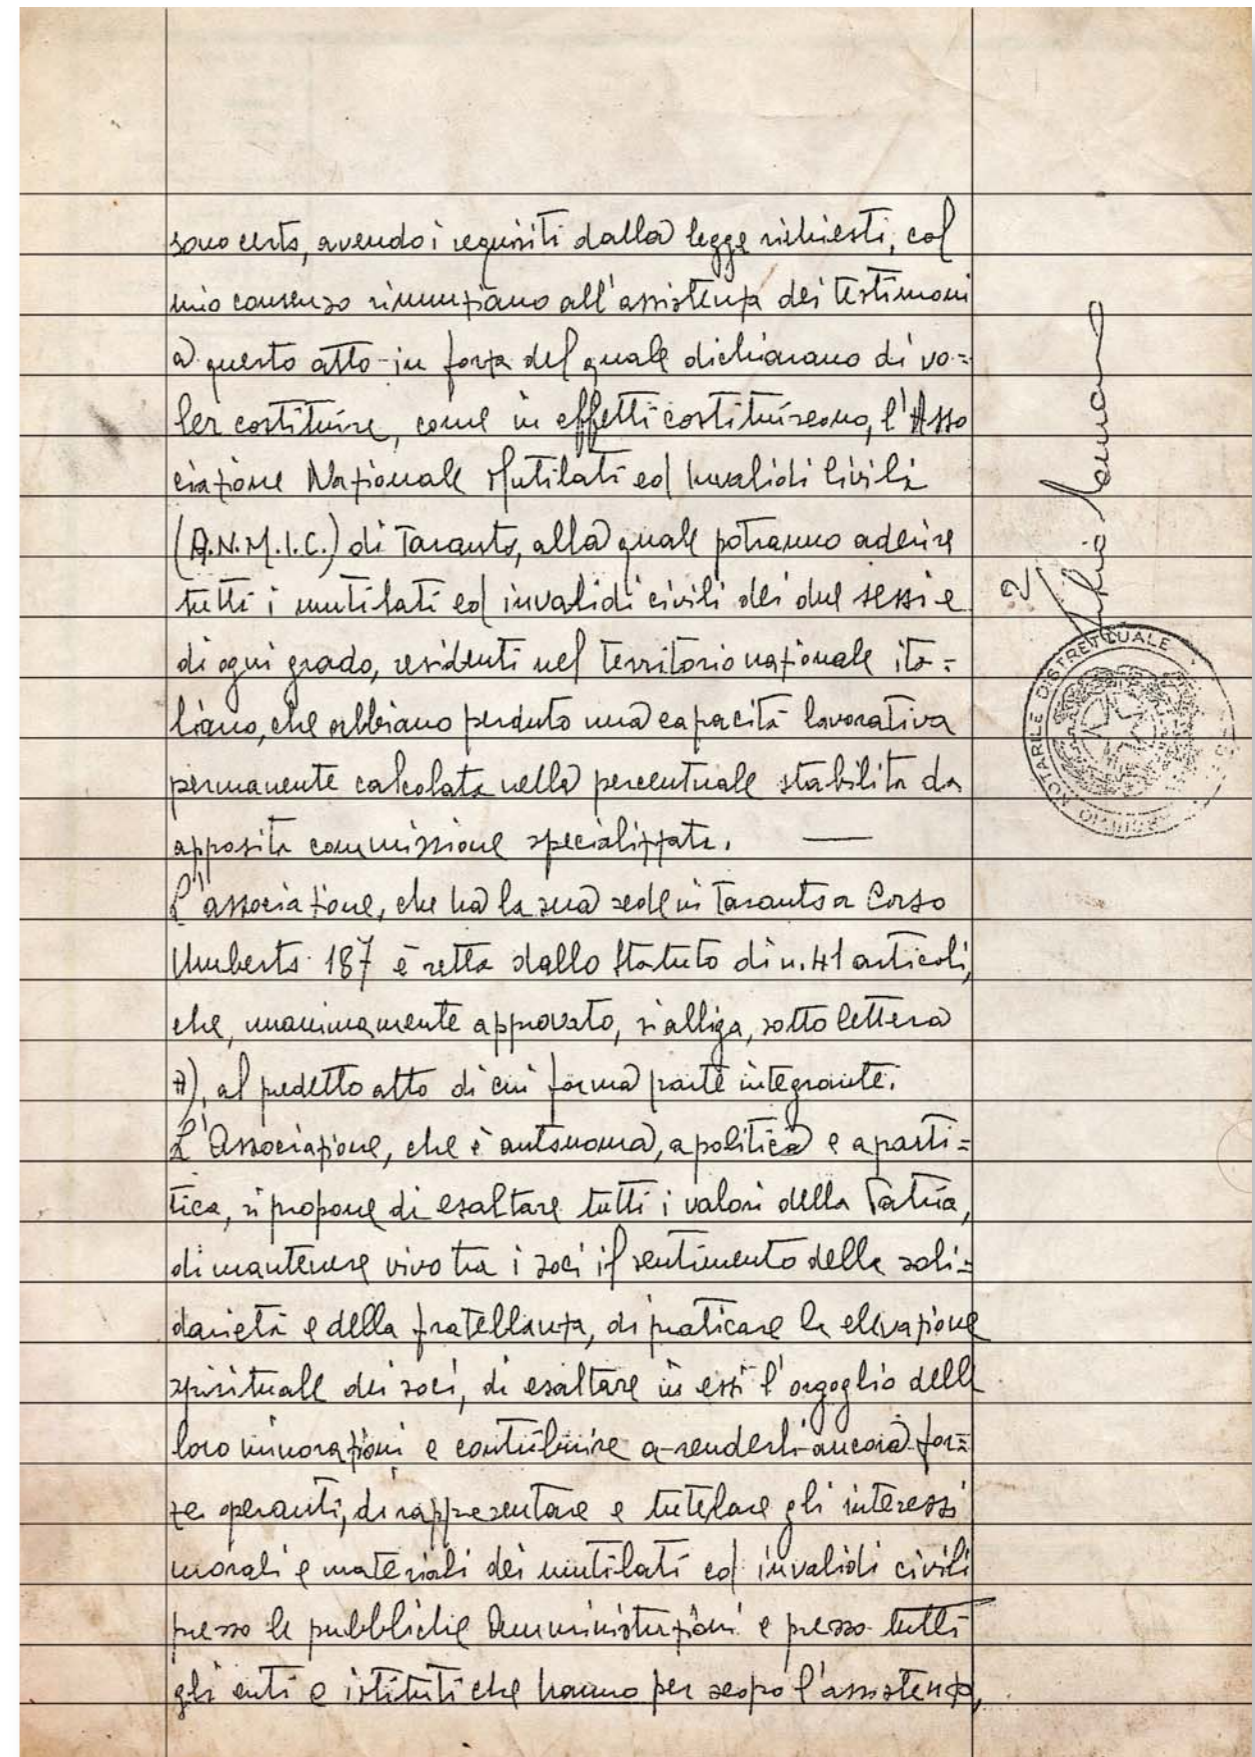 sono certo, avendo i requisiti dalla legge richiesti, col
mio consenso rinunziano all'assistenza dei testimoni
a questo atto in forza del quale dichiarano di vo=
ler costituire, come in effetti costituiscono, l'Asso
ciazione Nazionale Mutilati ed Invalidi Civili
(A.N.M.I.C.) di Taranto, alla quale potranno aderire
tutti i mutilati ed invalidi civili dei due sessi e
di ogni grado, residenti nel territorio nazionale ita=
liano, che abbiano perduto una capacità lavorativa
permanente calcolata nella percentuale stabilita da
apposita commissione specializzata.
L'associazione, che ha la sua sede in Taranto a Corso
Umberto 187 è retta dallo Statuto di n. 41 articoli,
che, unanimamente approvato, si alliga, sotto lettera
A), al predetto atto di cui forma parte integrante.
L'Associazione, che è autonoma, apolitica e aparti=
tica, si propone di esaltare tutti i valori della Patria,
di mantenere vivo tra i soci il sentimento della soli=
darietà e della fratellanza, di praticare la elevazione
spirituale dei soci, di esaltare in essi l'orgoglio delle
loro minorazioni e contribuire a renderli ancora for=
ze operanti, di rappresentare e tutelare gli interessi
morali e materiali dei mutilati ed invalidi civili
presso le pubbliche Amministrazioni e presso tutti
gli enti e istituti che hanno per scopo l'assistenza,
2
ARCHIVIO NOTARILE DISTRETTUALE